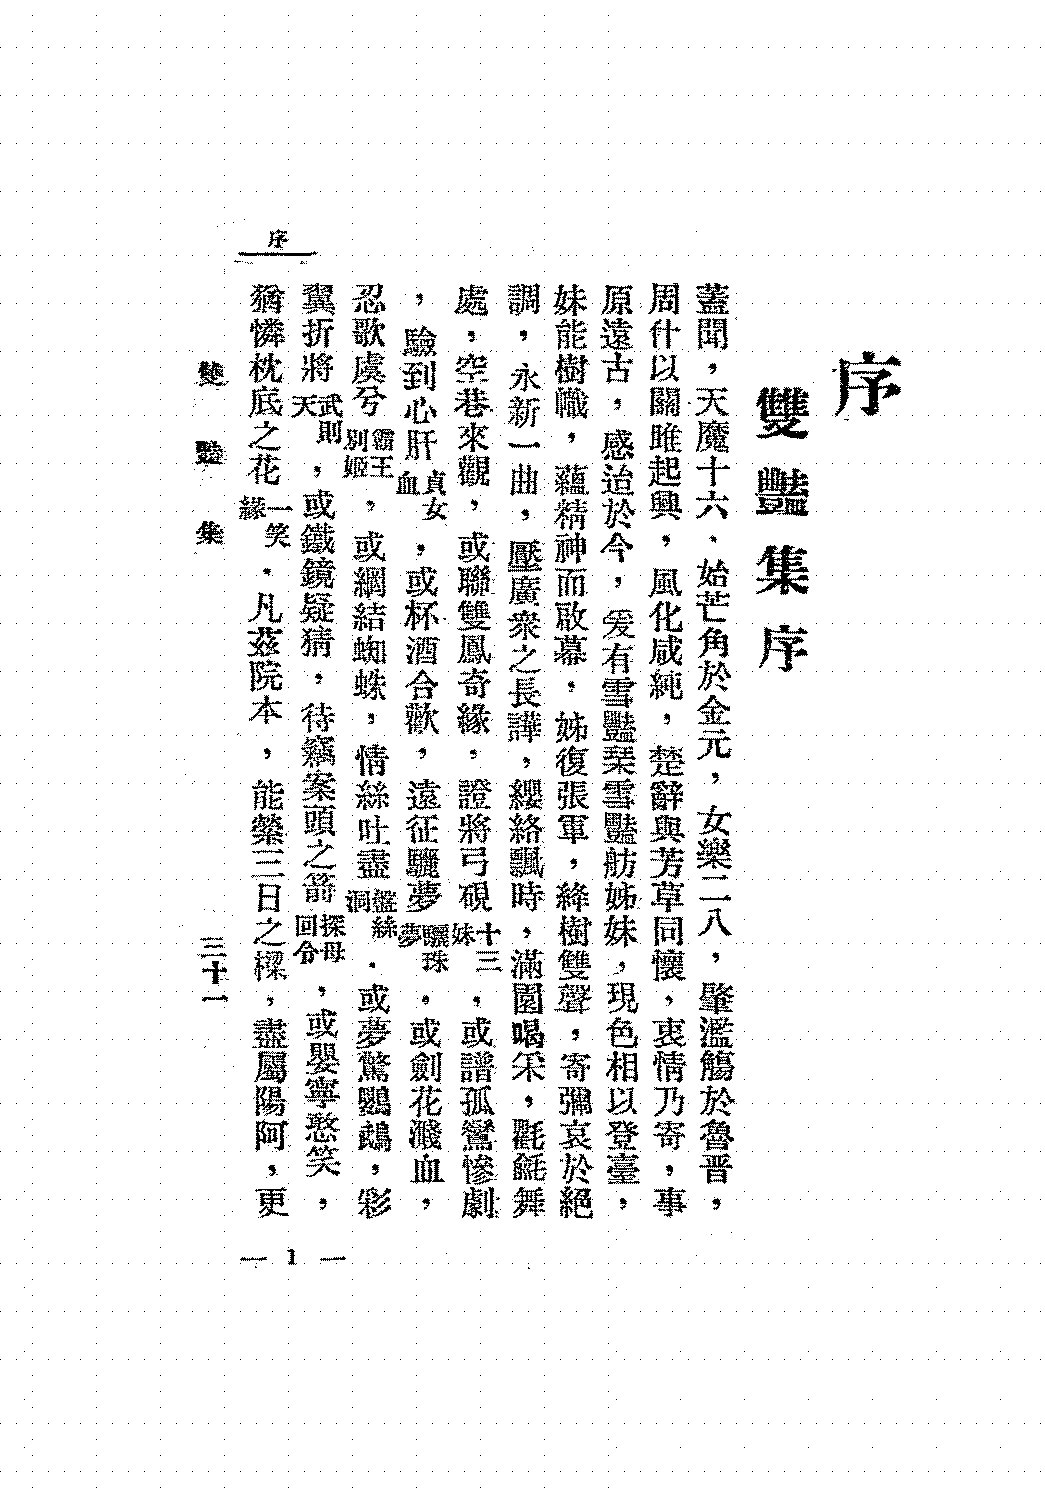 序
雙豔集序
蓋聞，天魔十六，始芒角於金元，女樂二八，肇濫觴於魯晋，
周什以關雎起興，風化咸純，楚辭與芳草同懷，衷情乃寄，事
原遠古，感治於今，爰有雪豔琹雪豔舫姊妹，現色相以登臺，
妹能樹幟，蘊精神而啟幕，姊復張軍，絳樹雙聲，寄彌哀於絕
調，永新一曲，壓廣衆之長譁，纓絡飄時，滿園喝采，氍毹舞
處，空巷來觀，或聯雙鳳奇緣，證將弓硯十三妹，或譜孤鸞慘劇
，驗到心肝貞女血，或杯酒合歡，遠征驪夢驪珠夢，或劍花濺血，
忍歌虞兮霸王別姬，或網結蜘蛛，情絲吐盡盤絲洞，或夢驚鸚鵡，彩
翼折將武則天，或鐵鏡疑猜，待竊案頭之箭探母回令，或嬰寧憨笑，
猶憐枕底之花一笑緣，凡茲院本，能縈三日之樑，盡屬陽阿，更
序
雙豔集
三十一
— 1 —